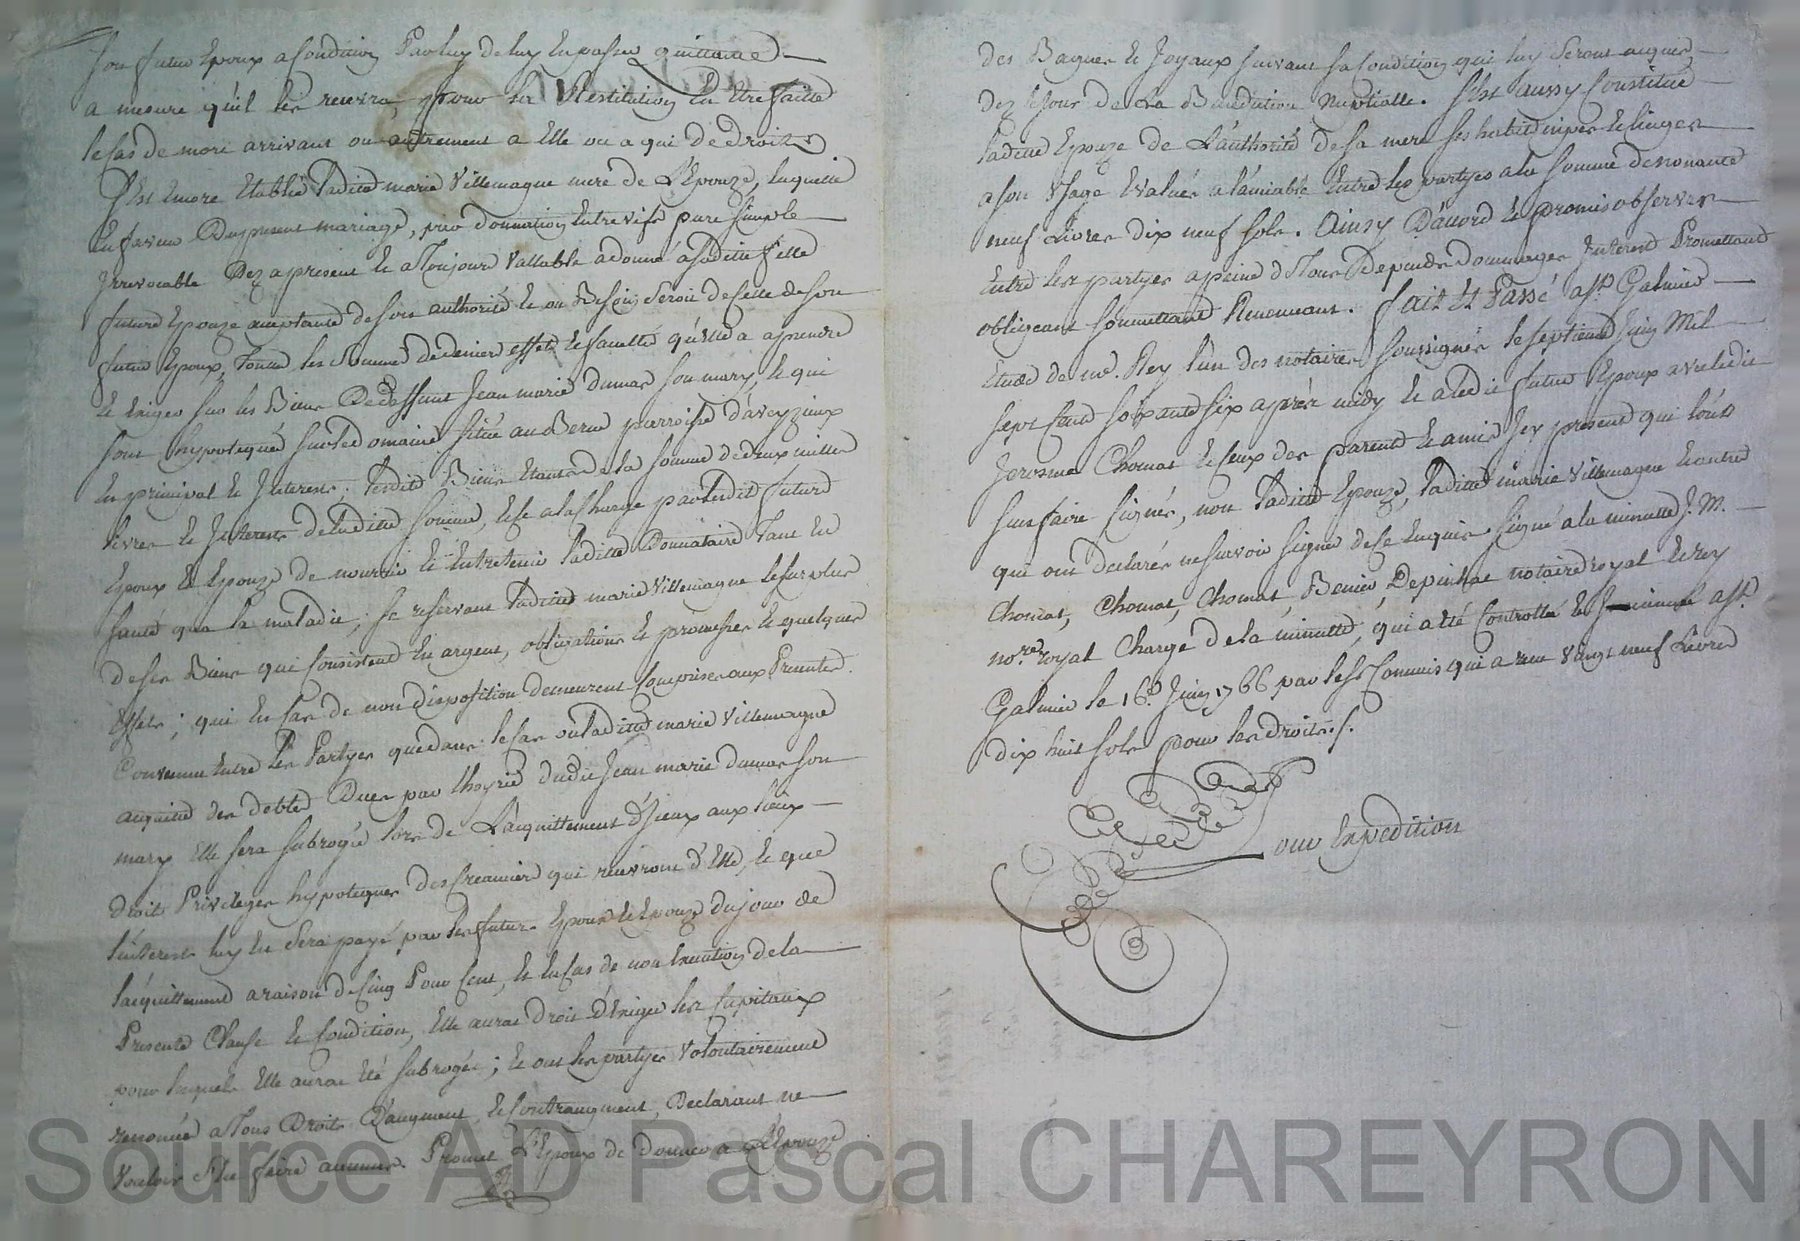 son futur Epoux a Condition Par luy de luy en passer quittance
a mesure quil les recevra, pour la Restitution En Etre faitte
le Cas de mort arrivant ou autrement a Elle ou a qui de droit
S'Est Encore Etablie Laditte marie Villemagne mere de L'Epouze, laquelle
En faveur Du present mariage, par donnation Entre vifs pure Simple
Irrevocable Dez a present Et a Toujours Vallable a donné a saditte fille
future Epouze acceptante de son authorité Et au Besoin Seroit de Celle de Son
futur Epoux, Toutes les Sommes de deniers effets Et facultés qu'elle a a prendre
Et Exiger sur les Biens De deffunt Jean marie dumas son mary, Et qui
sont hypotequés sur le domaine situé au Berne parroisse d'aveyzieux
En principal Et Interests; Lesdits Biens Etants de la somme de deux milles
livres Et Interests de laditte somme, Et ce a la Charge par lesdits futurs
Epoux Et Epouze de nourrir Et Entretenir laditte Donnataire Tant En
santé qu'a la maladie; se reservant laditte marie Villemagne le surplus
de ses Biens qui Consistent En argent, obligations Et promesses Et quelques
Effets; qui En Cas de non disposition demeurent Comprises aux Presentes.
Convenu Entre les Partyes que dans le Cas ou laditte marie Villemagne
acquitte des debtes Dues par lhoyrie dudit Jean marie dumas son
mary Elle sera subrogée lors de L'acquittement d'Iceux aux lieux
droits Privileges hypoteques des Creanciers qui recevront d'Elle, Et que
l'interest luy En Sera payé par les futurs Epoux Et Epouze du jour de
l'acquittement a raison de Cinq Pour Cent, Et En Cas de non Execution de la
Presente Clause Et Condition, Elle aura Droit d'Exiger les Capitaux
pour lesquels Elle aura Eté subrogée; Et ont les partyes Volontairement
renoncé a Tous Droits D'augment, Et Contraugment, Declarant ne
Vouloir S'En faire aucuns. Promet L'Epoux de donner a L'Epouze
des Bagues Et Joyaux suivant sa Condition qui luy Seront acquis
dez le jour de La Benediction Nuptialle. S'Est aussy Constitué
laditte Epouze de L'authorité de sa mere ses habits nipes Et linges
a son Usage Evalués a l'amiable Entre les partyes a la somme de nonante
neuf Livres dix neuf sols. Ainsy D'accord Et promis observer
Entre les partyes a peine de Tous Depends dommages Interests Promettant
obligeant soumettant Renonceant. fait Et Passé a St. Galmier
Etude de me. Rey l'un des notaires soussignés le septieme Juin Mil
sept Cent soixante six après midy Et a ledit futur Epoux avec ledit
Jerosme Chomat Et Ceux des parents Et amis Icy presents qui l'ont
sceu faire signés, non laditte Epouze, laditte marie Villemagne Et autres
qui ont declarés ne sçavoir signer de ce Enquis. Signé a la minutte J. M.
Chomat, Chomat, Chomat, Benier, Depinhac notaire royal Et rey
nore. royal Chargé de la minutte, qui a été Controllée Et Insinuée a St.
Galmier le 16e. Juin 1766 par le Sr Commis qui a recu Vingt neuf Livres
dix huit sols pour les droits.
Pour Expedition
Source AD Pascal CHAREYRON